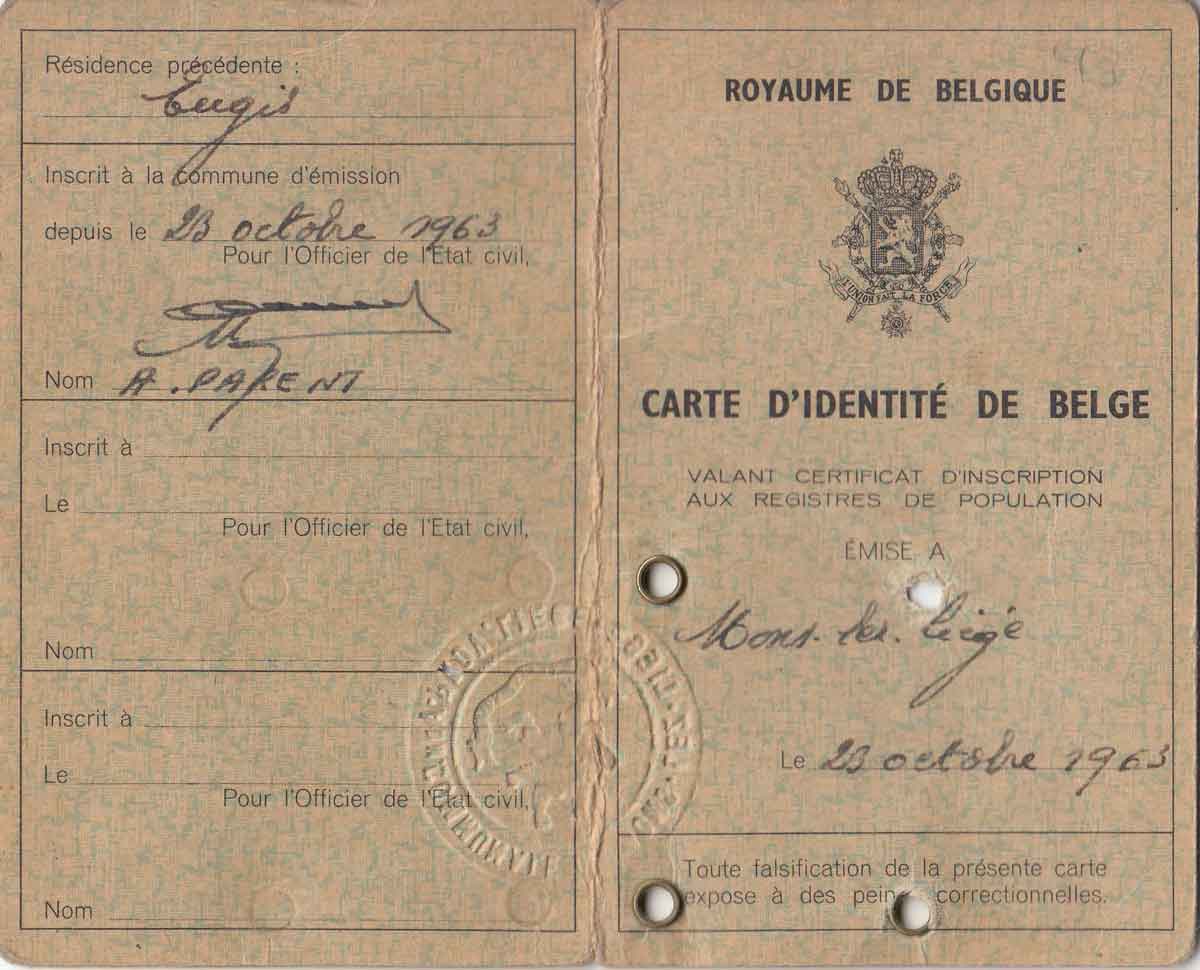 Résidence précédente :
Engis
Inscrit à la commune d'émission
depuis le 23 octobre 1963
Pour l'Officier de l'Etat civil,
Nom A. PARENT
Inscrit à
Le
Pour l'Officier de l'Etat civil,
Nom
Inscrit à
Le
Pour l'Officier de l'Etat civil,
Nom
ROYAUME DE BELGIQUE
L'UNION FAIT LA FORCE
CARTE D'IDENTITÉ DE BELGE
VALANT CERTIFICAT D'INSCRIPTION
AUX REGISTRES DE POPULATION
ÉMISE A
Mons-lez-Liège
Le 23 octobre 1963
Toute falsification de la présente carte
expose à des peines correctionnelles.